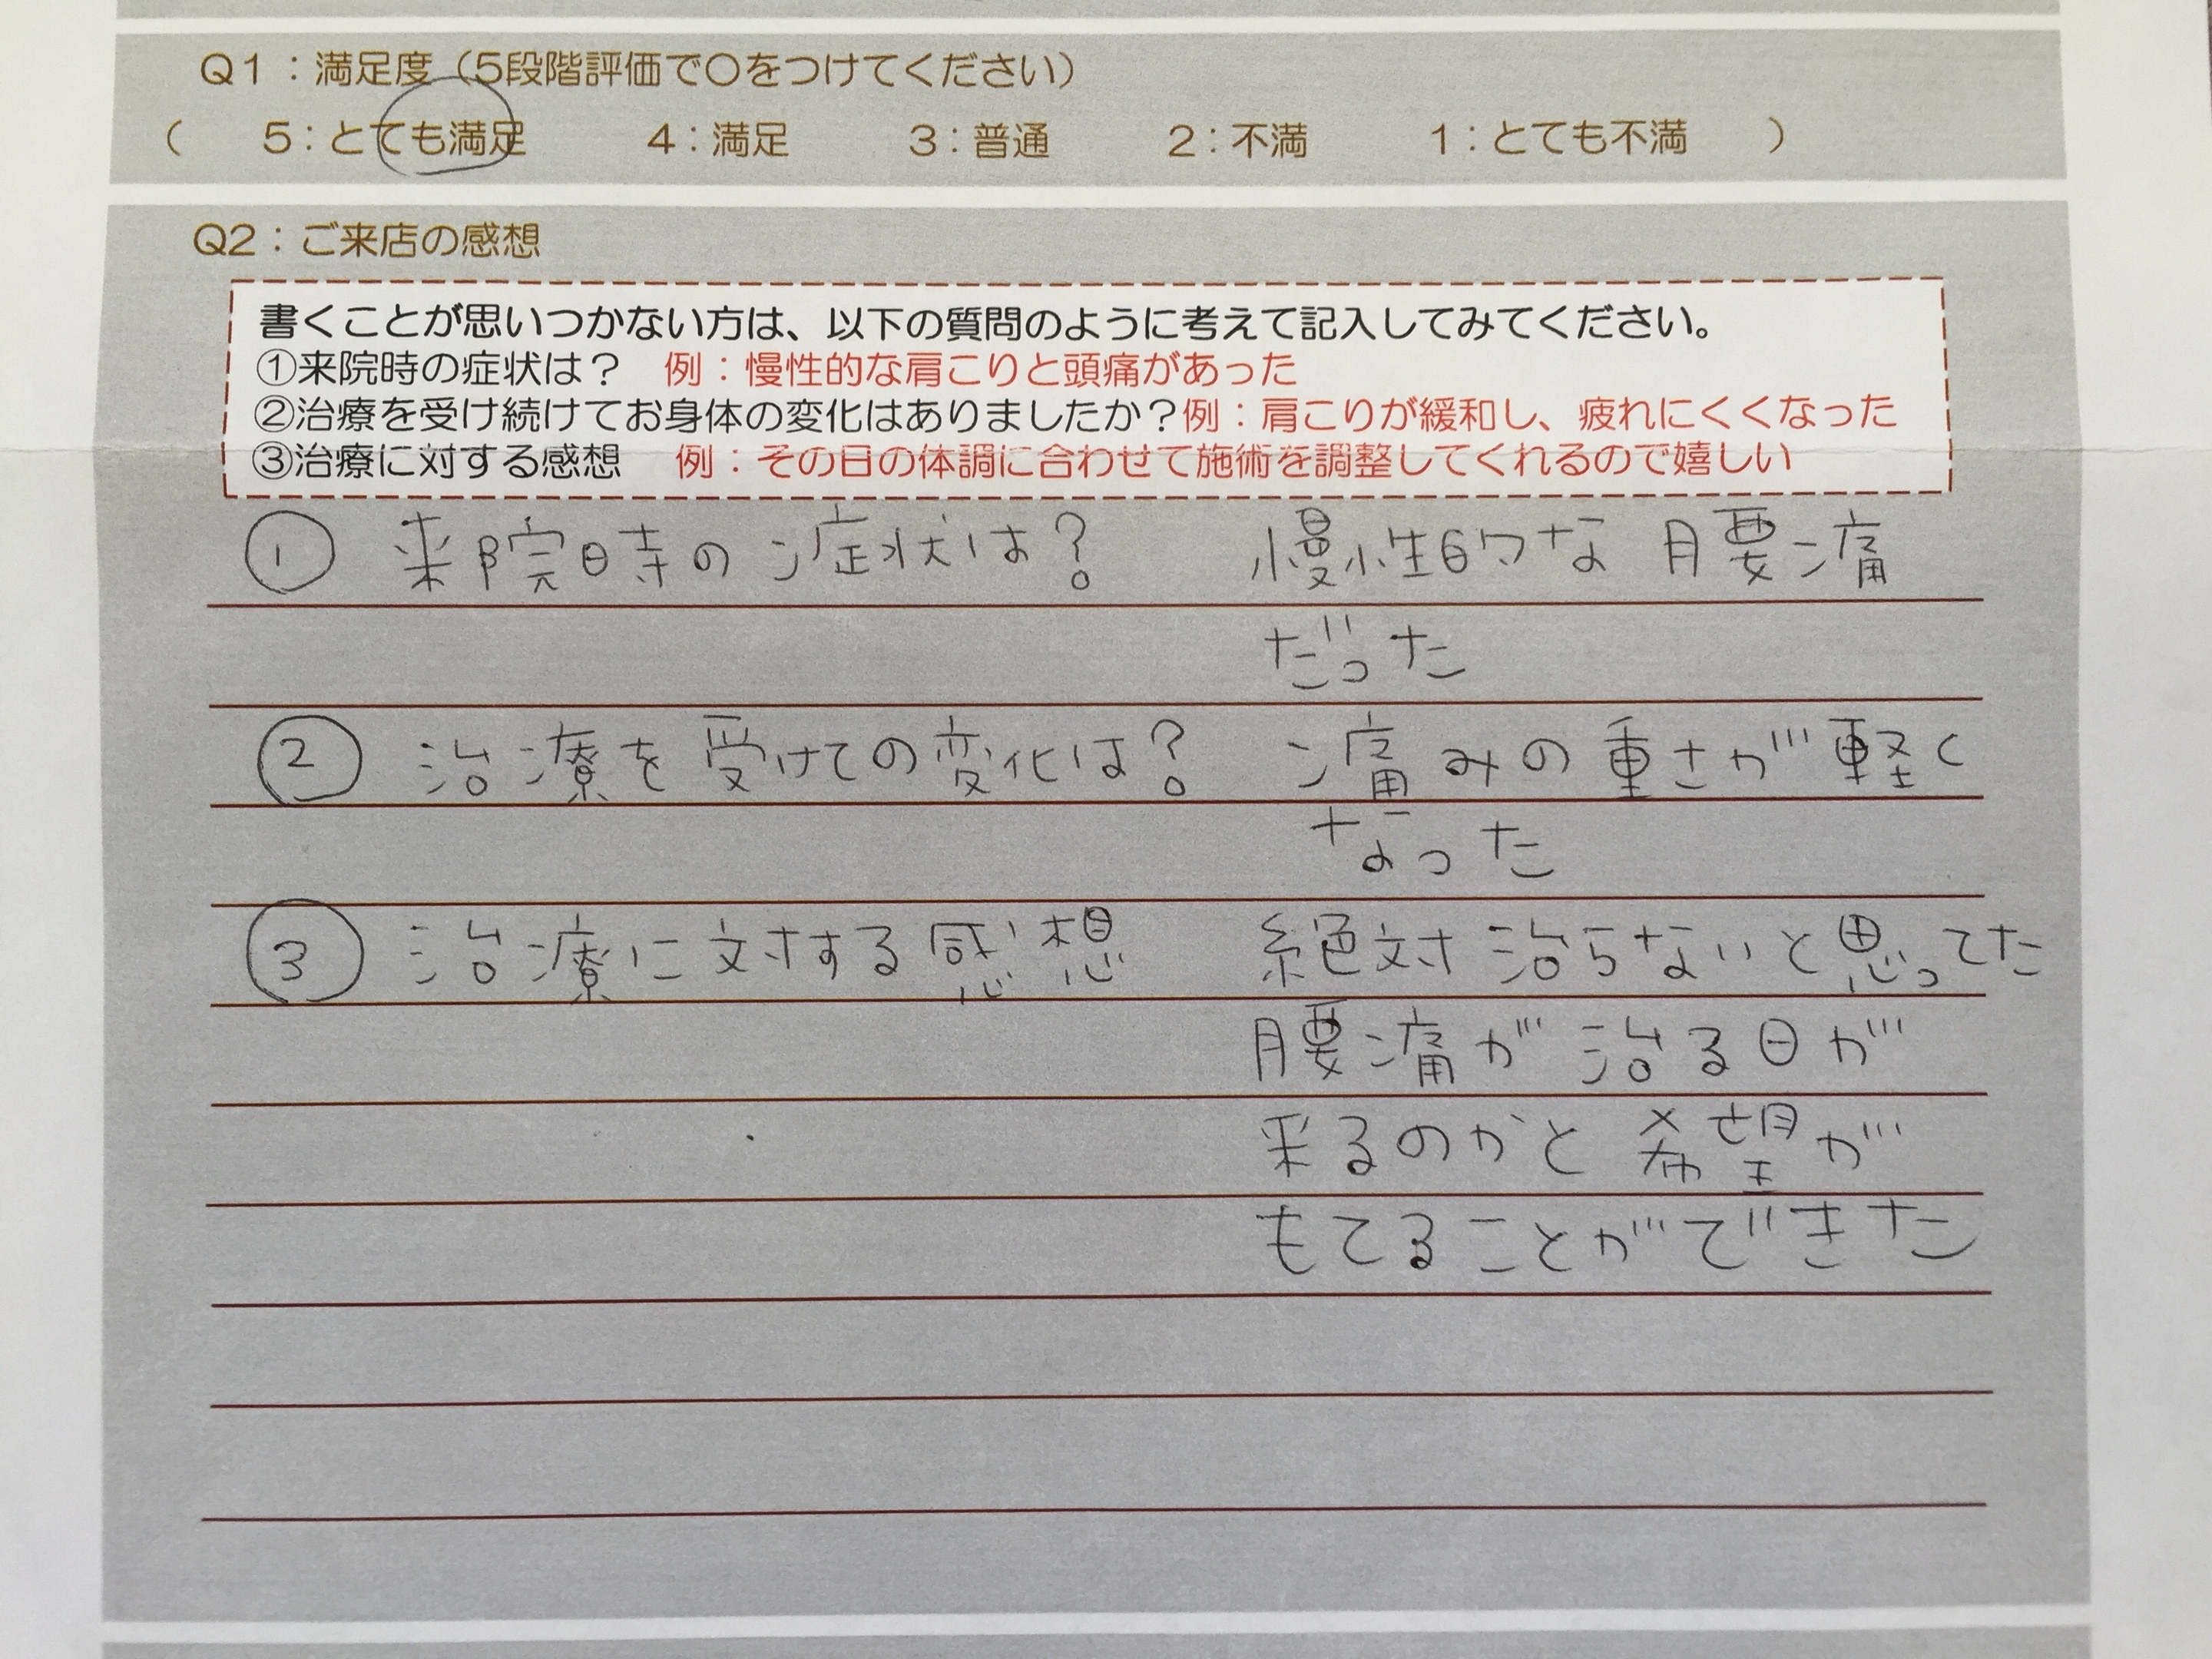 Q1：満足度（5段階評価で〇をつけてください）
（　5：とても満足　4：満足　3：普通　2：不満　1：とても不満　）
Q2：ご来店の感想
書くことが思いつかない方は、以下の質問のように考えて記入してみてください。
①来院時の症状は？　例：慢性的な肩こりと頭痛があった
②治療を受け続けてお身体の変化はありましたか？例：肩こりが緩和し、疲れにくくなった
③治療に対する感想　例：その日の体調に合わせて施術を調整してくれるので嬉しい
① 来院時の症状は？　慢性的な腰痛
だった
② 治療を受けての変化は？　痛みの重さが軽く
なった
③ 治療に対する感想　絶対治らないと思ってた
腰痛が治る日が
来るのかと希望が
もてることができた